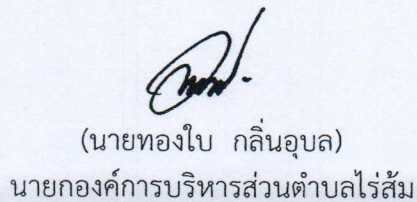 (นายทองใบ กลิ่นอุบล)
นายกองค์การบริหารส่วนตำบลไร่ส้ม